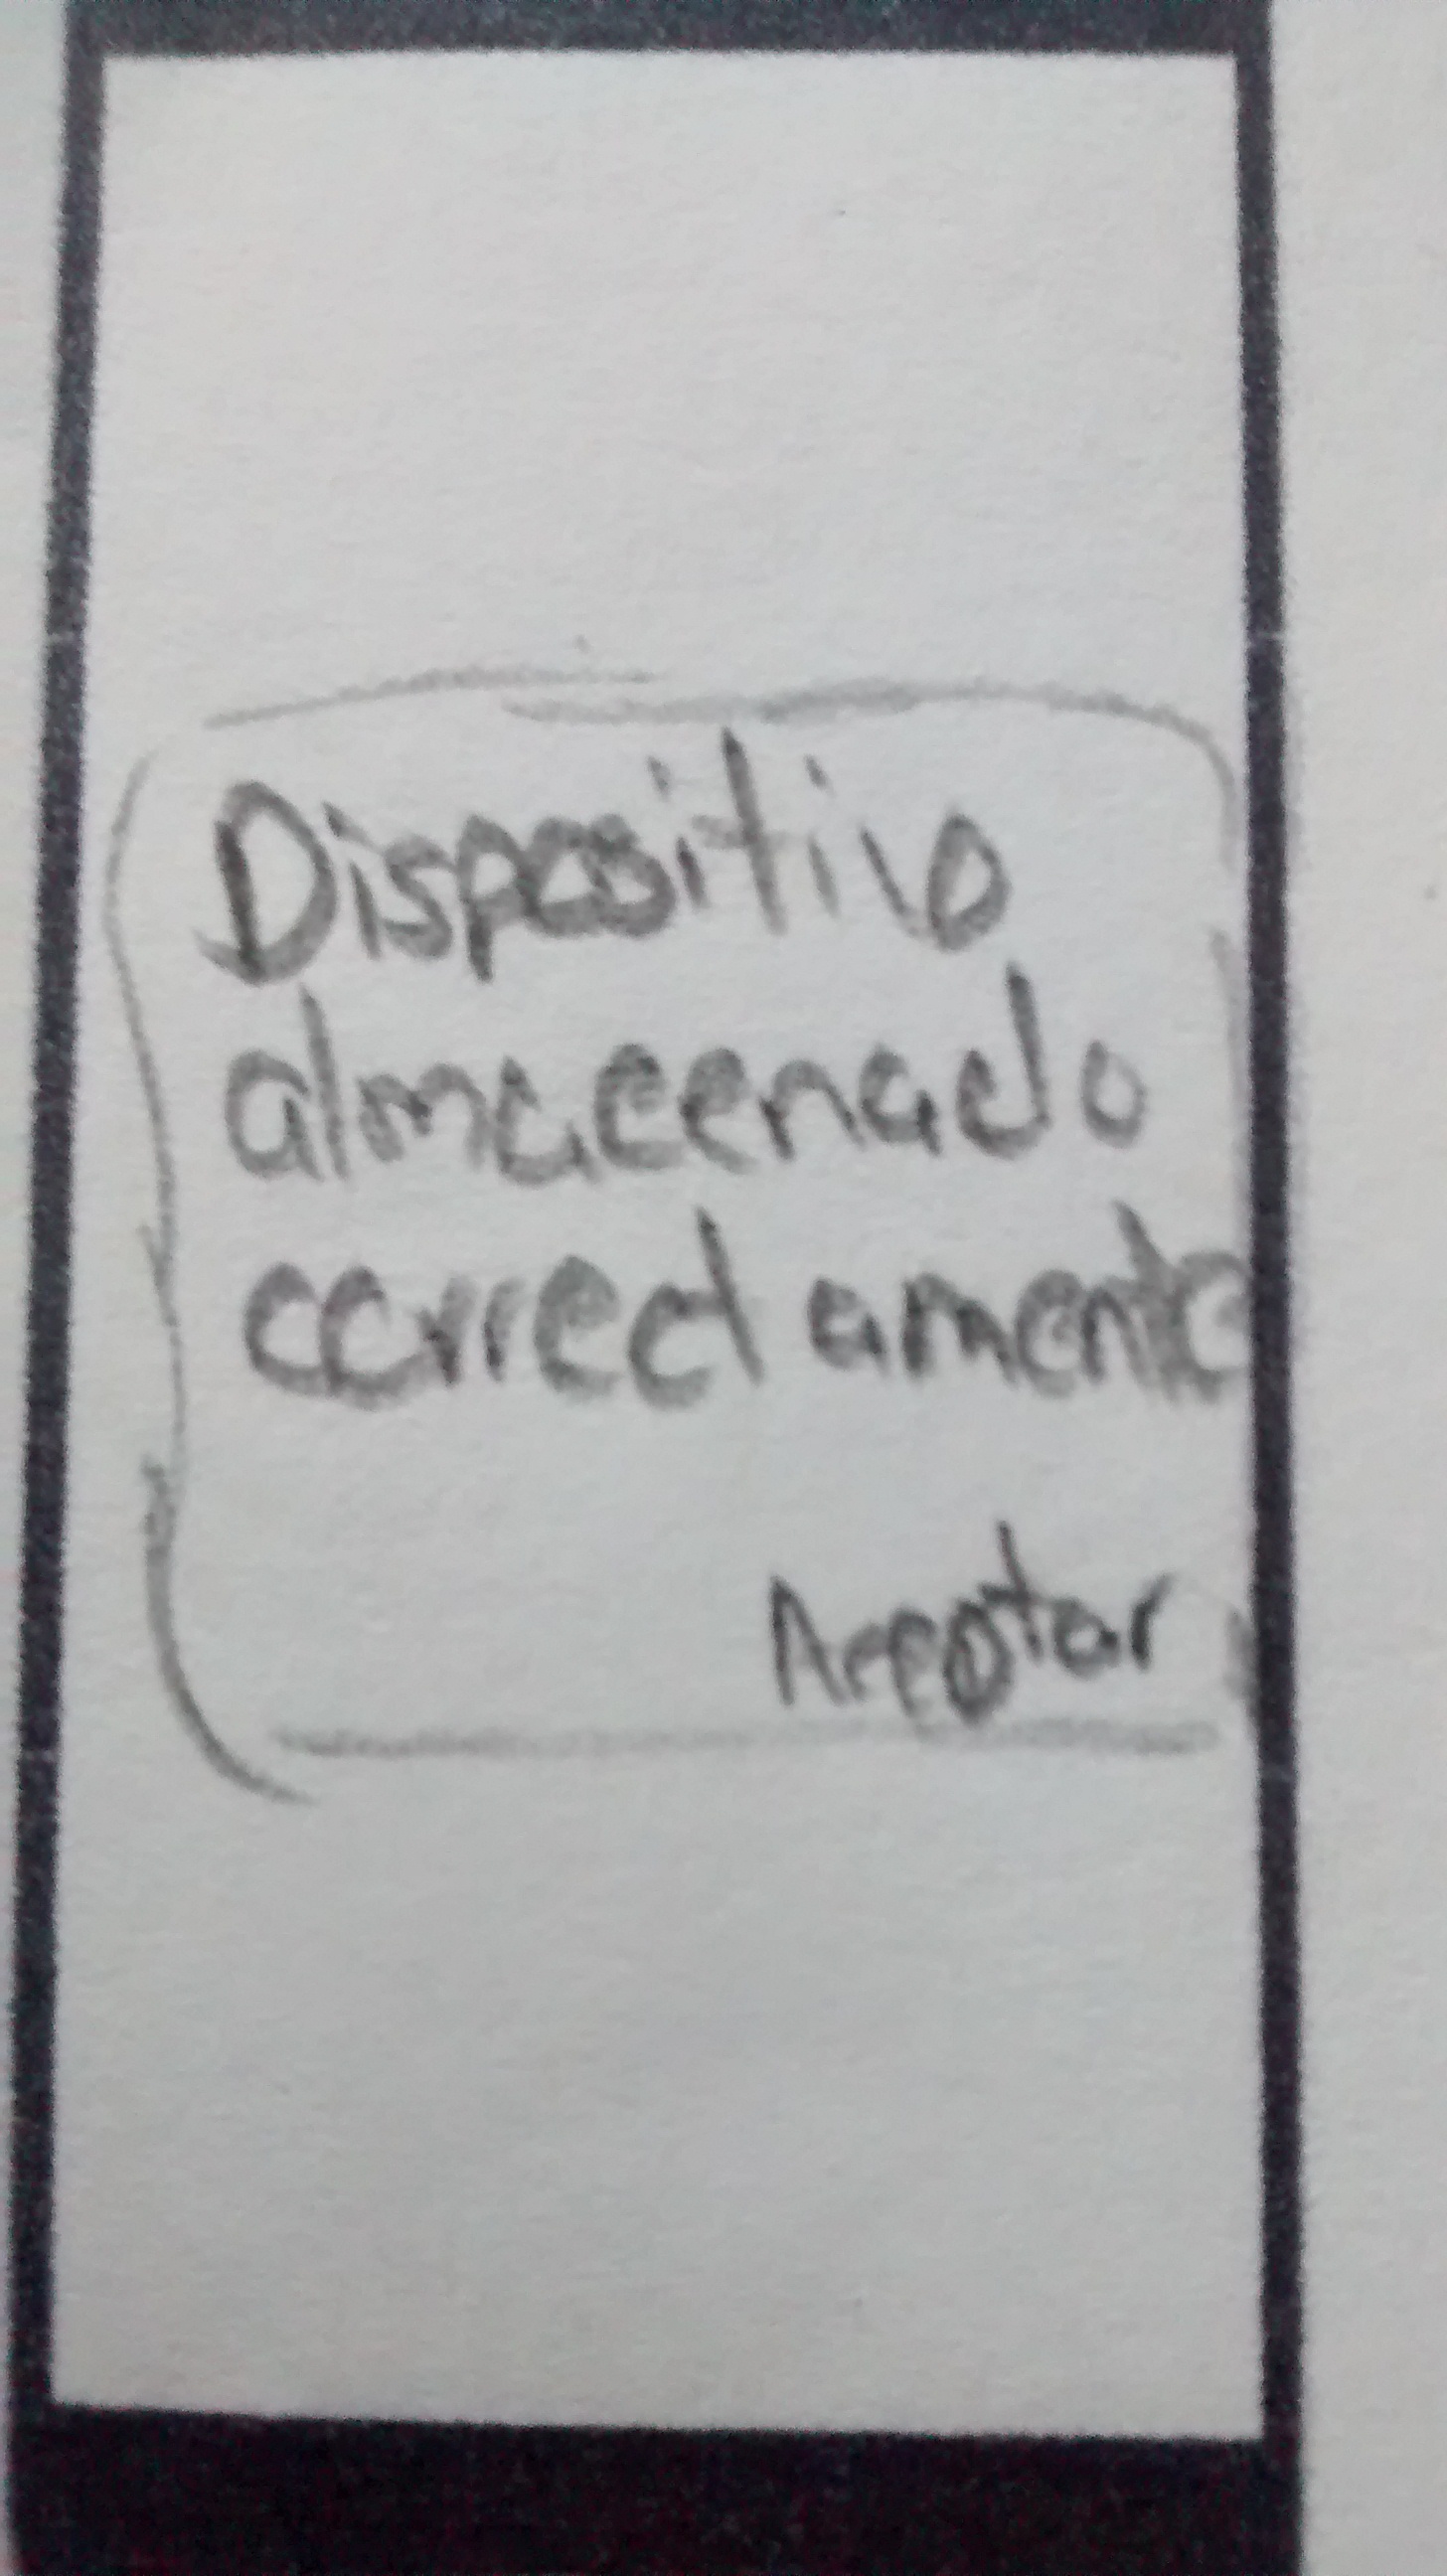 Dispositivo
almacenado
correctamente
Aceptar